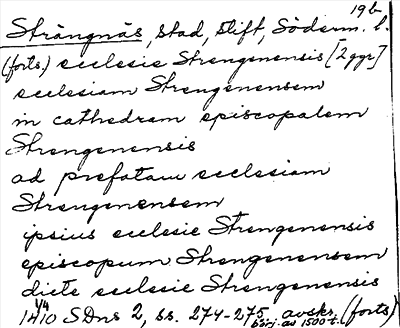 19b
Strängnäs, stad, stift, Söderm. l.
(forts.) ecclesie Strengenensis [2 ggr]
ecclesiam Strengenensem
in cathedram episcopalem
Strengenensis
ad prefatam ecclesiam
Strengenensem
ipsius ecclesie Strengenensis
episcopum Strengenensem
dicte ecclesie Strengenensis
1/4 1410 SDns 2, ss. 274-275, avskr. (forts)
börj. av 1500-t.